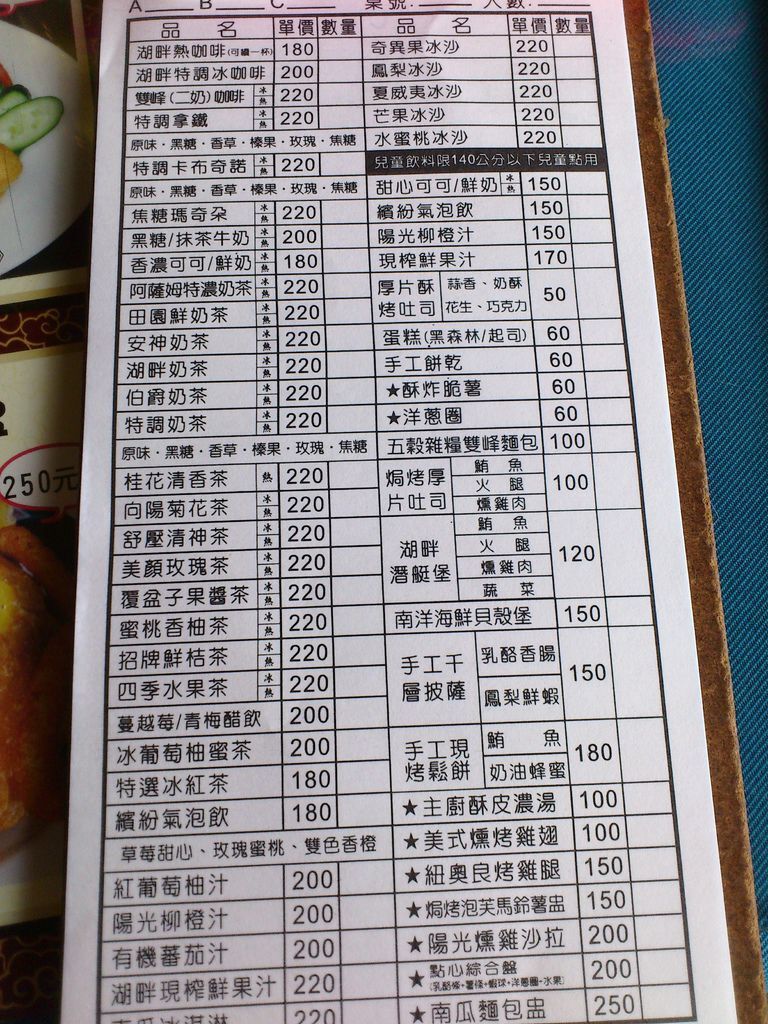 A B C 桌號: 人數:
品 名 單價 數量
湖畔熱咖啡(可續一杯) 180
湖畔特調冰咖啡 200
雙峰(二奶)咖啡 冰熱 220
特調拿鐵 冰熱 220
原味·黑糖·香草·榛果·玫瑰·焦糖
特調卡布奇諾 冰熱 220
原味·黑糖·香草·榛果·玫瑰·焦糖
焦糖瑪奇朵 冰熱 220
黑糖/抹茶牛奶 冰熱 200
香濃可可/鮮奶 冰熱 180
阿薩姆特濃奶茶 冰熱 220
田園鮮奶茶 冰熱 220
安神奶茶 冰熱 220
湖畔奶茶 冰熱 220
伯爵奶茶 冰熱 220
特調奶茶 冰熱 220
原味·黑糖·香草·榛果·玫瑰·焦糖
桂花清香茶 熱 220
向陽菊花茶 冰熱 220
舒壓清神茶 冰熱 220
美顏玫瑰茶 冰熱 220
覆盆子果醬茶 冰熱 220
蜜桃香柚茶 冰熱 220
招牌鮮桔茶 冰熱 220
四季水果茶 冰熱 220
蔓越莓/青梅醋飲 200
冰葡萄柚蜜茶 200
特選冰紅茶 180
繽紛氣泡飲 180
草莓甜心、玫瑰蜜桃、雙色香橙
紅葡萄柚汁 200
陽光柳橙汁 200
有機蕃茄汁 200
湖畔現榨鮮果汁 220
南瓜冰淇淋
品 名 單價 數量
奇異果冰沙 220
鳳梨冰沙 220
夏威夷冰沙 220
芒果冰沙 220
水蜜桃冰沙 220
兒童飲料限140公分以下兒童點用
甜心可可/鮮奶 冰熱 150
繽紛氣泡飲 150
陽光柳橙汁 150
現榨鮮果汁 170
厚片酥烤吐司 蒜香、奶酥 花生、巧克力 50
蛋糕(黑森林/起司) 60
手工餅乾 60
★酥炸脆薯 60
★洋蔥圈 60
五穀雜糧雙峰麵包 100
焗烤厚片吐司 鮪魚 火腿 燻雞肉 100
湖畔潛艇堡 鮪魚 火腿 燻雞肉 蔬菜 120
南洋海鮮貝殼堡 150
手工千層披薩 乳酪香腸 鳳梨鮮蝦 150
手工現烤鬆餅 鮪魚 奶油蜂蜜 180
★主廚酥皮濃湯 100
★美式燻烤雞翅 100
★紐奧良烤雞腿 150
★焗烤泡芙馬鈴薯盅 150
★陽光燻雞沙拉 200
★點心綜合盤 (乳酪條+薯條+蝦球+洋蔥圈+水果) 200
★南瓜麵包盅 250
250元